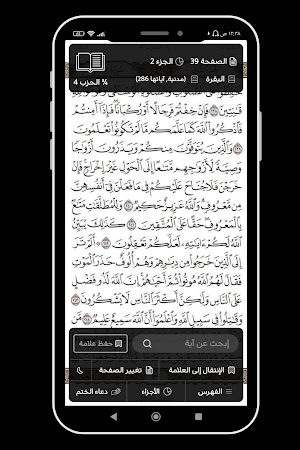 ١٢:٣٨ ص
الصفحة 39
الجزء 2
البقرة
(مدنية, آياتها 286)
¾ الحزب 4
قَٰنِتِينَ فَإِنْ خِفْتُمْ فَرِجَالًا أَوْ رُكْبَانًا فَإِذَآ أَمِنتُمْ
فَٱذْكُرُوا۟ ٱللَّهَ كَمَا عَلَّمَكُم مَّا لَمْ تَكُونُوا۟ تَعْلَمُونَ
وَٱلَّذِينَ يُتَوَفَّوْنَ مِنكُمْ وَيَذَرُونَ أَزْوَٰجًا
وَصِيَّةً لِّأَزْوَٰجِهِم مَّتَٰعًا إِلَى ٱلْحَوْلِ غَيْرَ إِخْرَاجٍ فَإِنْ
خَرَجْنَ فَلَا جُنَاحَ عَلَيْكُمْ فِى مَا فَعَلْنَ فِىٓ أَنفُسِهِنَّ
مِن مَّعْرُوفٍ وَٱللَّهُ عَزِيزٌ حَكِيمٌ وَلِلْمُطَلَّقَٰتِ مَتَٰعٌۢ
بِٱلْمَعْرُوفِ حَقًّا عَلَى ٱلْمُتَّقِينَ كَذَٰلِكَ يُبَيِّنُ
ٱللَّهُ لَكُمْ ءَايَٰتِهِۦ لَعَلَّكُمْ تَعْقِلُونَ أَلَمْ تَرَ
إِلَى ٱلَّذِينَ خَرَجُوا۟ مِن دِيَٰرِهِمْ وَهُمْ أُلُوفٌ حَذَرَ ٱلْمَوْتِ
فَقَالَ لَهُمُ ٱللَّهُ مُوتُوا۟ ثُمَّ أَحْيَٰهُمْ إِنَّ ٱللَّهَ لَذُو فَضْلٍ
عَلَى ٱلنَّاسِ وَلَٰكِنَّ أَكْثَرَ ٱلنَّاسِ لَا يَشْكُرُونَ
وَقَٰتِلُوا۟ فِى سَبِيلِ ٱللَّهِ وَٱعْلَمُوٓا۟ أَنَّ ٱللَّهَ سَمِيعٌ عَلِيمٌ
إبحث عن آية
حفظ علامة
الإنتقال إلى العلامة
تغيير الصفحة
الفهرس
الأجزاء
دعاء الختم